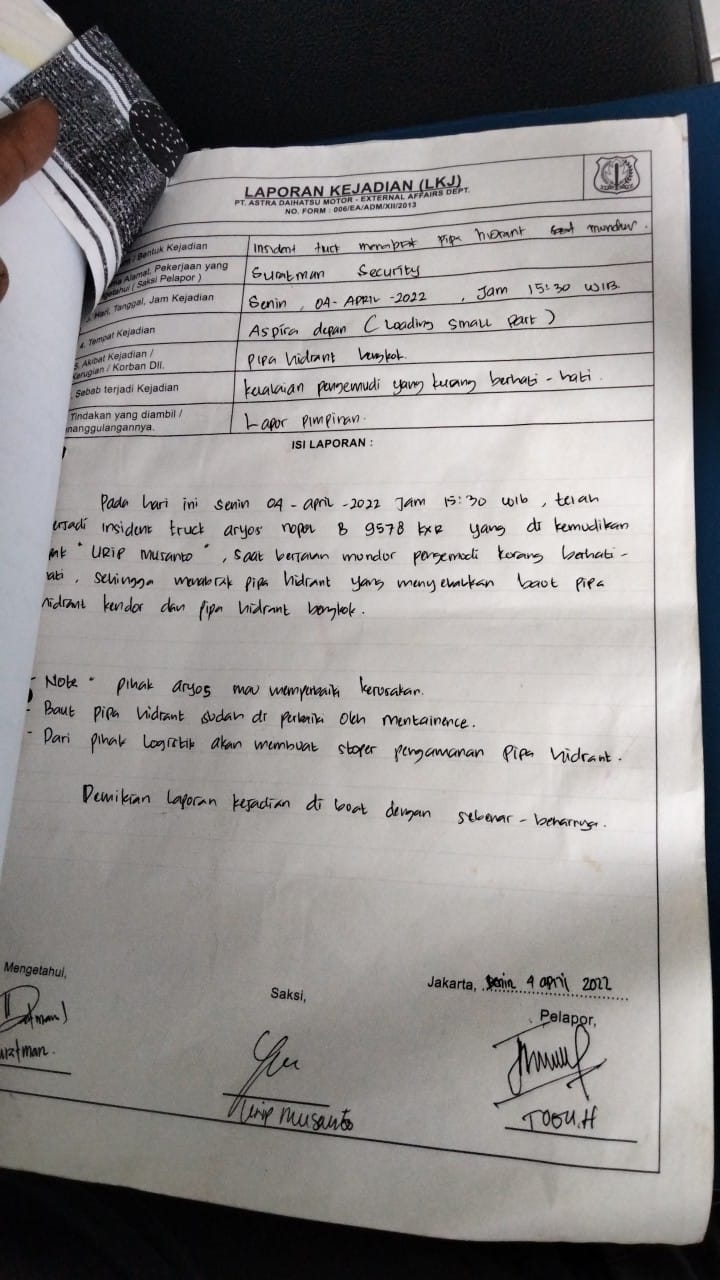 LAPORAN KEJADIAN (LKJ)
PT. ASTRA DAIHATSU MOTOR - EXTERNAL AFFAIRS DEPT.
NO. FORM : 006/EA/ADM/XII/2013
/ Bentuk Kejadian Insident truct menabrak pipa hidrant saat mundur.
Alamat, Pekerjaan yang
( Saksi Pelapor ) Suratman Security
Hari, Tanggal, Jam Kejadian Senin, 04-APRIL-2022, Jam 15:30 WIB
4. Tempat Kejadian Aspira depan (Loading small part)
5. Akibat Kejadian /
Kerugian / Korban Dll. Pipa hidrant bengkok.
Sebab terjadi Kejadian kelalaian pengemudi yang kurang berhati-hati.
Tindakan yang diambil /
nanggulangannya. Lapor pimpinan.
ISI LAPORAN :
Pada hari ini Senin 04-april-2022 Jam 15:30 WIB, telah
erjadi insident truck aryos nopol B 9578 KXR yang di kemudikan
"URIP MUSANTO", saat berjalan mundur pengemudi kurang berhati-
hati, sehingga menabrak pipa hidrant yang menyebabkan baut pipa
hidrant kendor dan pipa hidrant bengkok.
- Note " pihak aryos mau memperbaiki kerusakan.
- Baut pipa hidrant sudah di perbaiki oleh mentainence.
- Dari pihak Logistik akan membuat stoper pengamanan pipa hidrant.
Demikian laporan kejadian di buat dengan sebenar-benarnya.
Jakarta, Senin 4 april 2022
Mengetahui, Saksi, Pelapor,
uratman. Urip Musanto TOGU.H